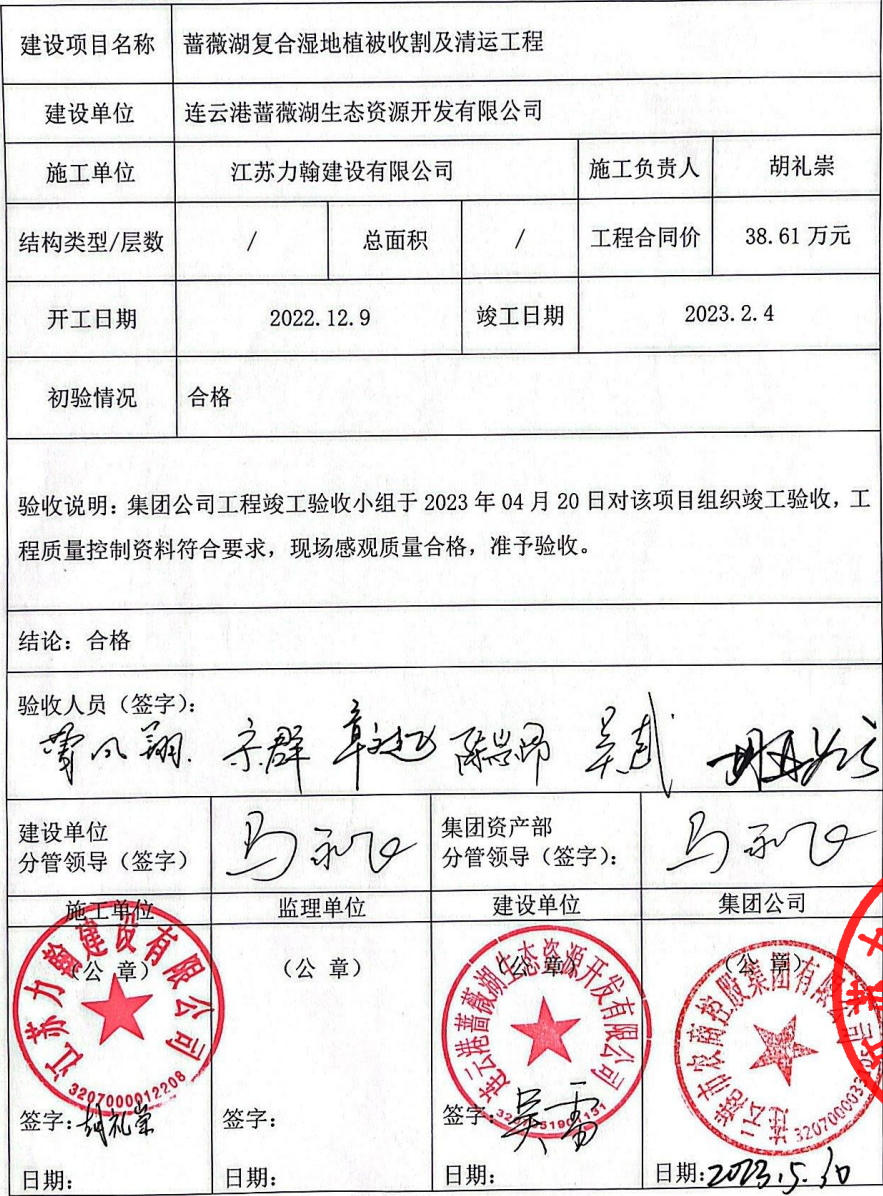 建设项目名称 蔷薇湖复合湿地植被收割及清运工程
建设单位 连云港蔷薇湖生态资源开发有限公司
施工单位 江苏力翰建设有限公司 施工负责人 胡礼崇
结构类型/层数 / 总面积 / 工程合同价 38.61 万元
开工日期 2022.12.9 竣工日期 2023.2.4
初验情况 合格
验收说明：集团公司工程竣工验收小组于 2023 年 04 月 20 日对该项目组织竣工验收，工
程质量控制资料符合要求，现场感观质量合格，准予验收。
结论：合格
验收人员（签字）：
宗群
建设单位
分管领导（签字）
集团资产部
分管领导（签字）：
施工单位 监理单位 建设单位 集团公司
（公 章） （公 章） （公 章） （公 章）
江苏力翰建设有限公司
3207000012208
连云港蔷薇湖生态资源开发有限公司
连云港市农商控股集团有限公司
签字：胡礼崇 签字： 签字：吴雷
日期： 日期： 日期： 日期：2023.5.30